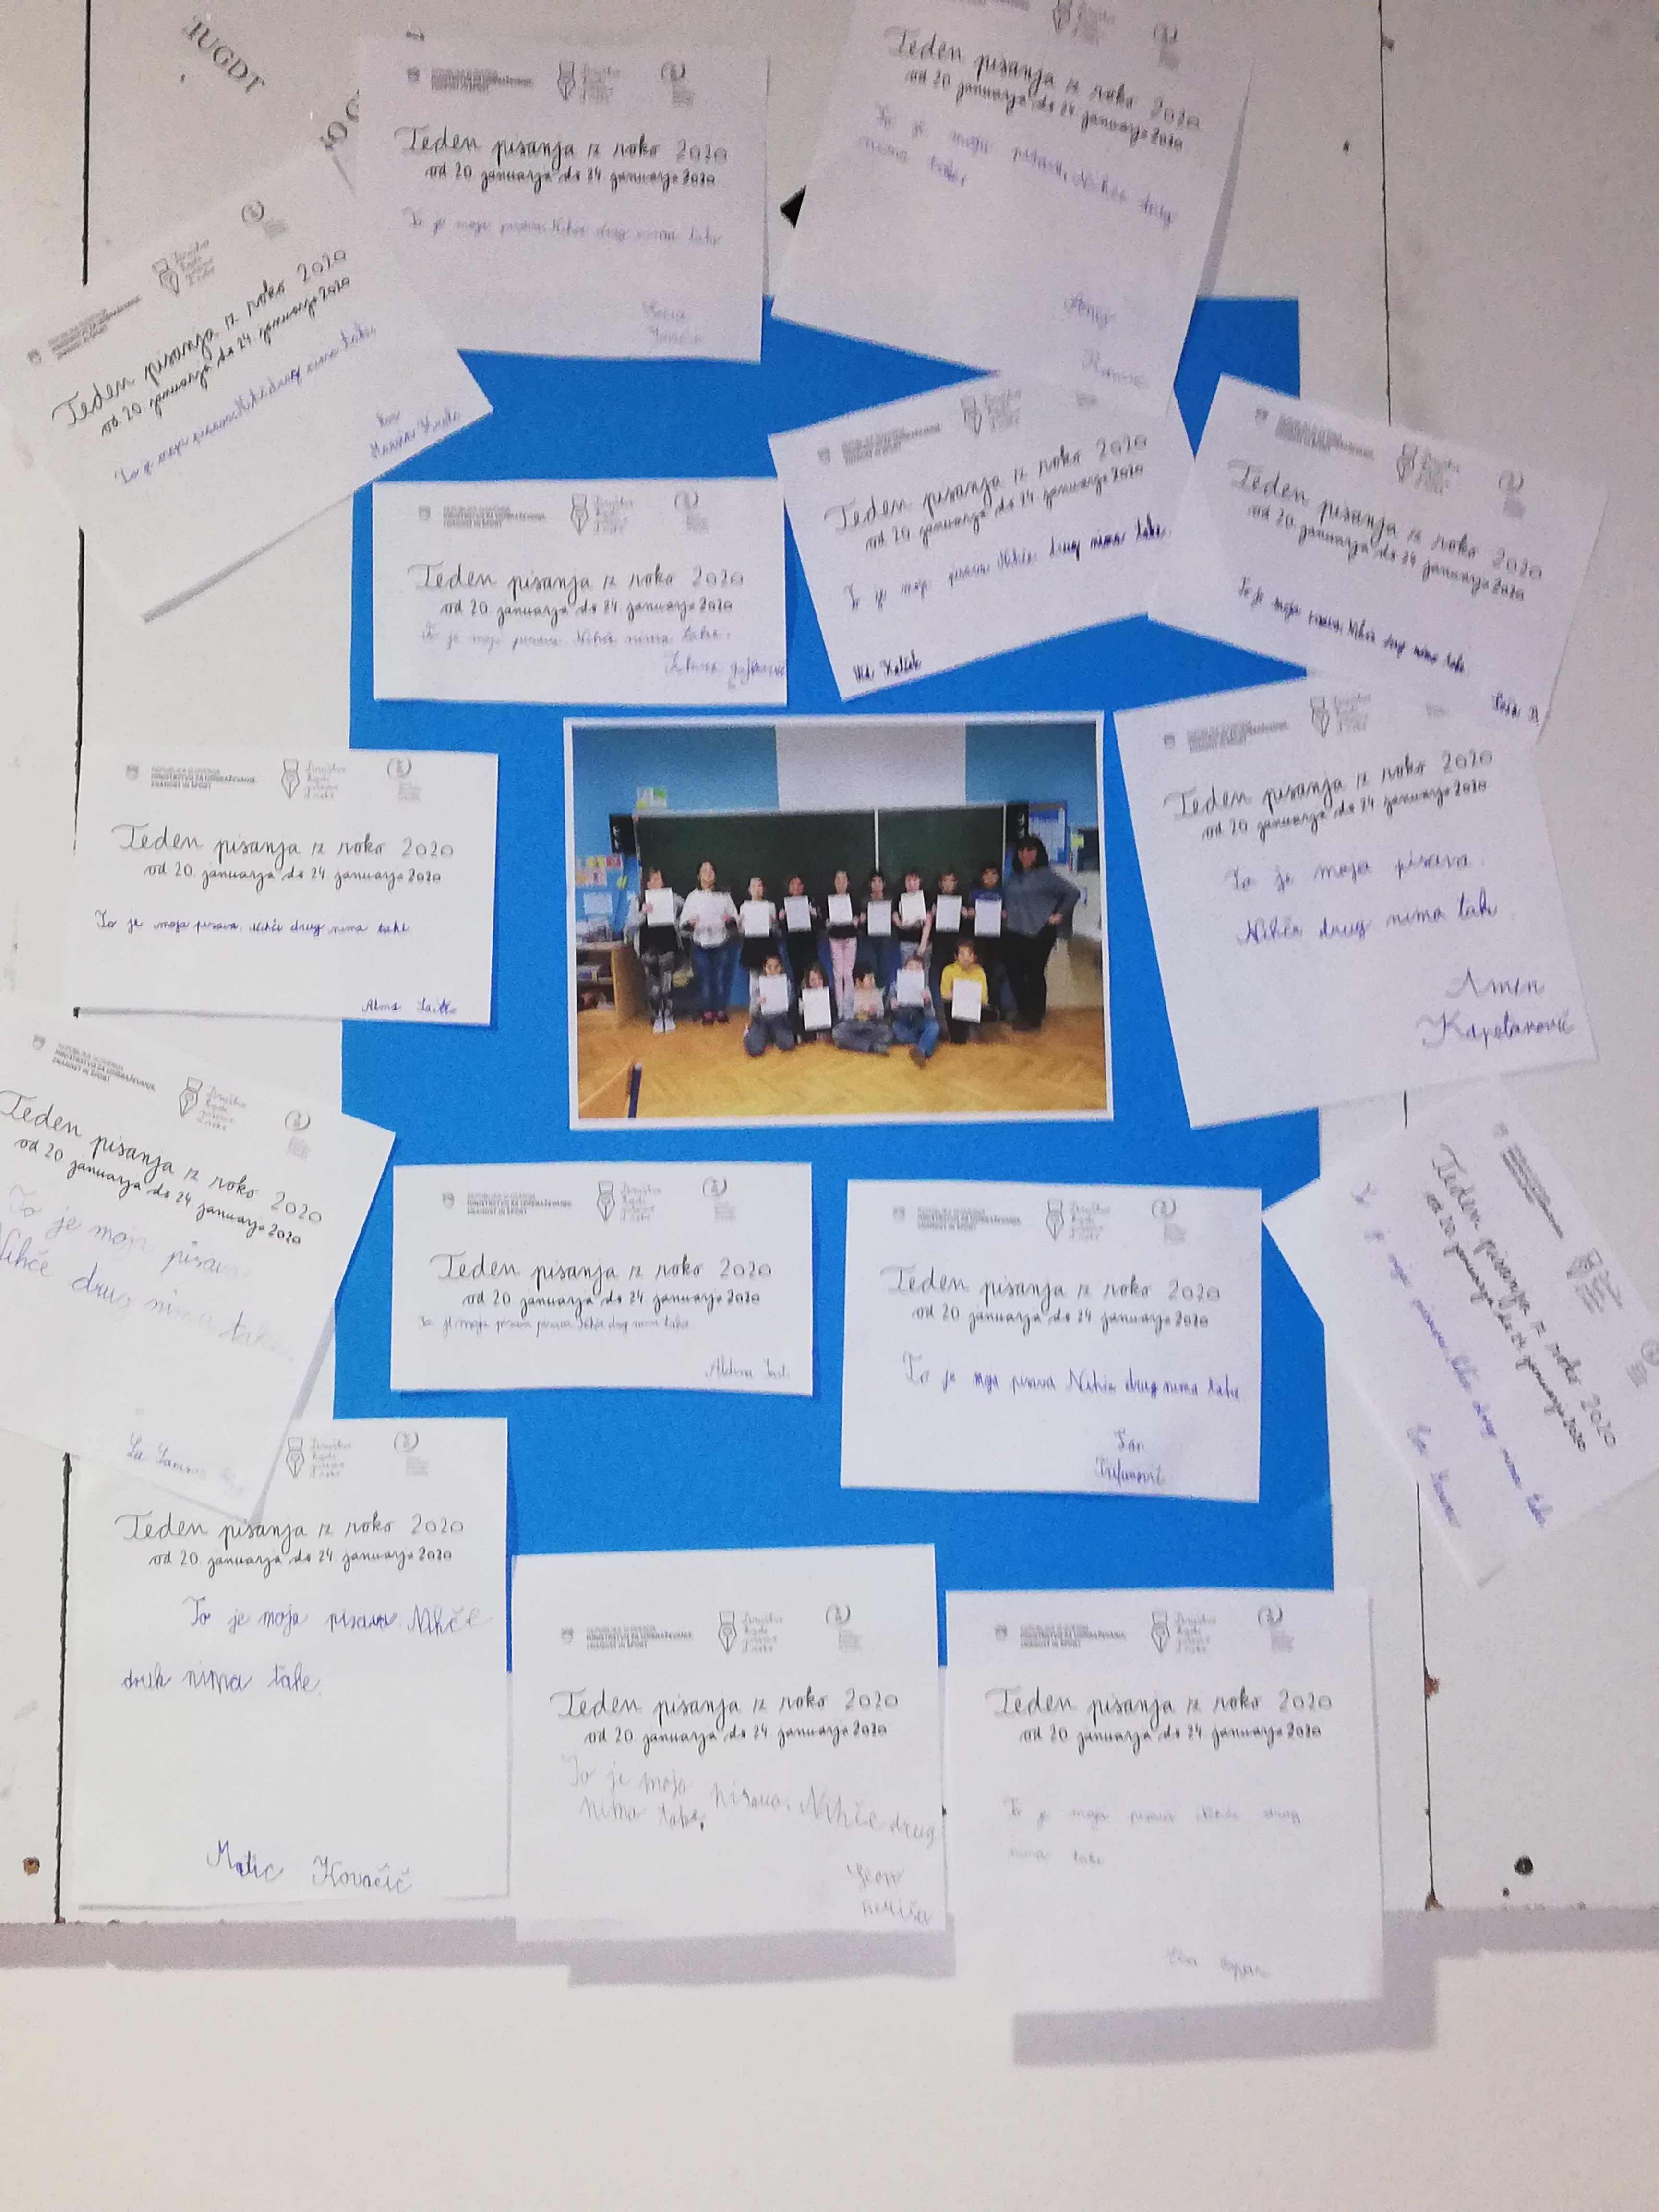 REPUBLIKA SLOVENIJA
MINISTRSTVO ZA IZOBRAŽEVANJE,
ZNANOST IN ŠPORT
Teden pisanja z roko 2020
od 20. januarja do 24. januarja 2020
To je moja pisava. Nihče drug nima take
Teden pisanja z roko 2020
od 20. januarja do 24. januarja 2020
To je moja pisava. Nihče drug
nima take
Teden pisanja z roko 2020
od 20. januarja do 24. januarja 2020
To je moja pisava. Nihče drug nima take.
Teden pisanja z roko 2020
od 20. januarja do 24. januarja 2020
To je moja pisava. Nihče nima take.
Teden pisanja z roko 2020
od 20. januarja do 24. januarja 2020
To je moja pisava. Nihče drug nima take.
Teden pisanja z roko 2020
od 20. januarja do 24. januarja 2020
To je moja pisava. Nihče drug nima take.
Teden pisanja z roko 2020
od 20. januarja do 24. januarja 2020
To je moja pisava.
Nihče drug nima tak
Amen
Kapetanović
REPUBLIKA SLOVENIJA
MINISTRSTVO ZA IZOBRAŽEVANJE,
ZNANOST IN ŠPORT
Teden pisanja z roko 2020
od 20. januarja do 24. januarja 2020
To je moja pisava. Nihče drug nima take
Alma
REPUBLIKA SLOVENIJA
MINISTRSTVO ZA IZOBRAŽEVANJE,
ZNANOST IN ŠPORT
Teden pisanja z roko 2020
od 20. januarja do 24. januarja 2020
To je moja pisava
Nihče drug nima take.
REPUBLIKA SLOVENIJA
MINISTRSTVO ZA IZOBRAŽEVANJE,
ZNANOST IN ŠPORT
Teden pisanja z roko 2020
od 20. januarja do 24. januarja 2020
To je moja pisava pisava. Nihče drug nima take.
REPUBLIKA SLOVENIJA
MINISTRSTVO ZA IZOBRAŽEVANJE,
ZNANOST IN ŠPORT
Teden pisanja z roko 2020
od 20. januarja do 24. januarja 2020
To je moja pisava Nihče drug nima take
Jan
Trifunović
Teden pisanja z roko 2020
od 20. januarja do 24. januarja 2020
To je moja pisava. Nihče drug nima take.
Teden pisanja z roko 2020
od 20. januarja do 24. januarja 2020
To je moja pisava. Nihče
druk nima take.
Matic Kovačič
REPUBLIKA SLOVENIJA
MINISTRSTVO ZA IZOBRAŽEVANJE,
ZNANOST IN ŠPORT
Teden pisanja z roko 2020
od 20. januarja do 24. januarja 2020
To je moja pisava. Nihče drug
nima take.
REPUBLIKA SLOVENIJA
MINISTRSTVO ZA IZOBRAŽEVANJE,
ZNANOST IN ŠPORT
Teden pisanja z roko 2020
od 20. januarja do 24. januarja 2020
To je moja pisava Nihče drug
nima take